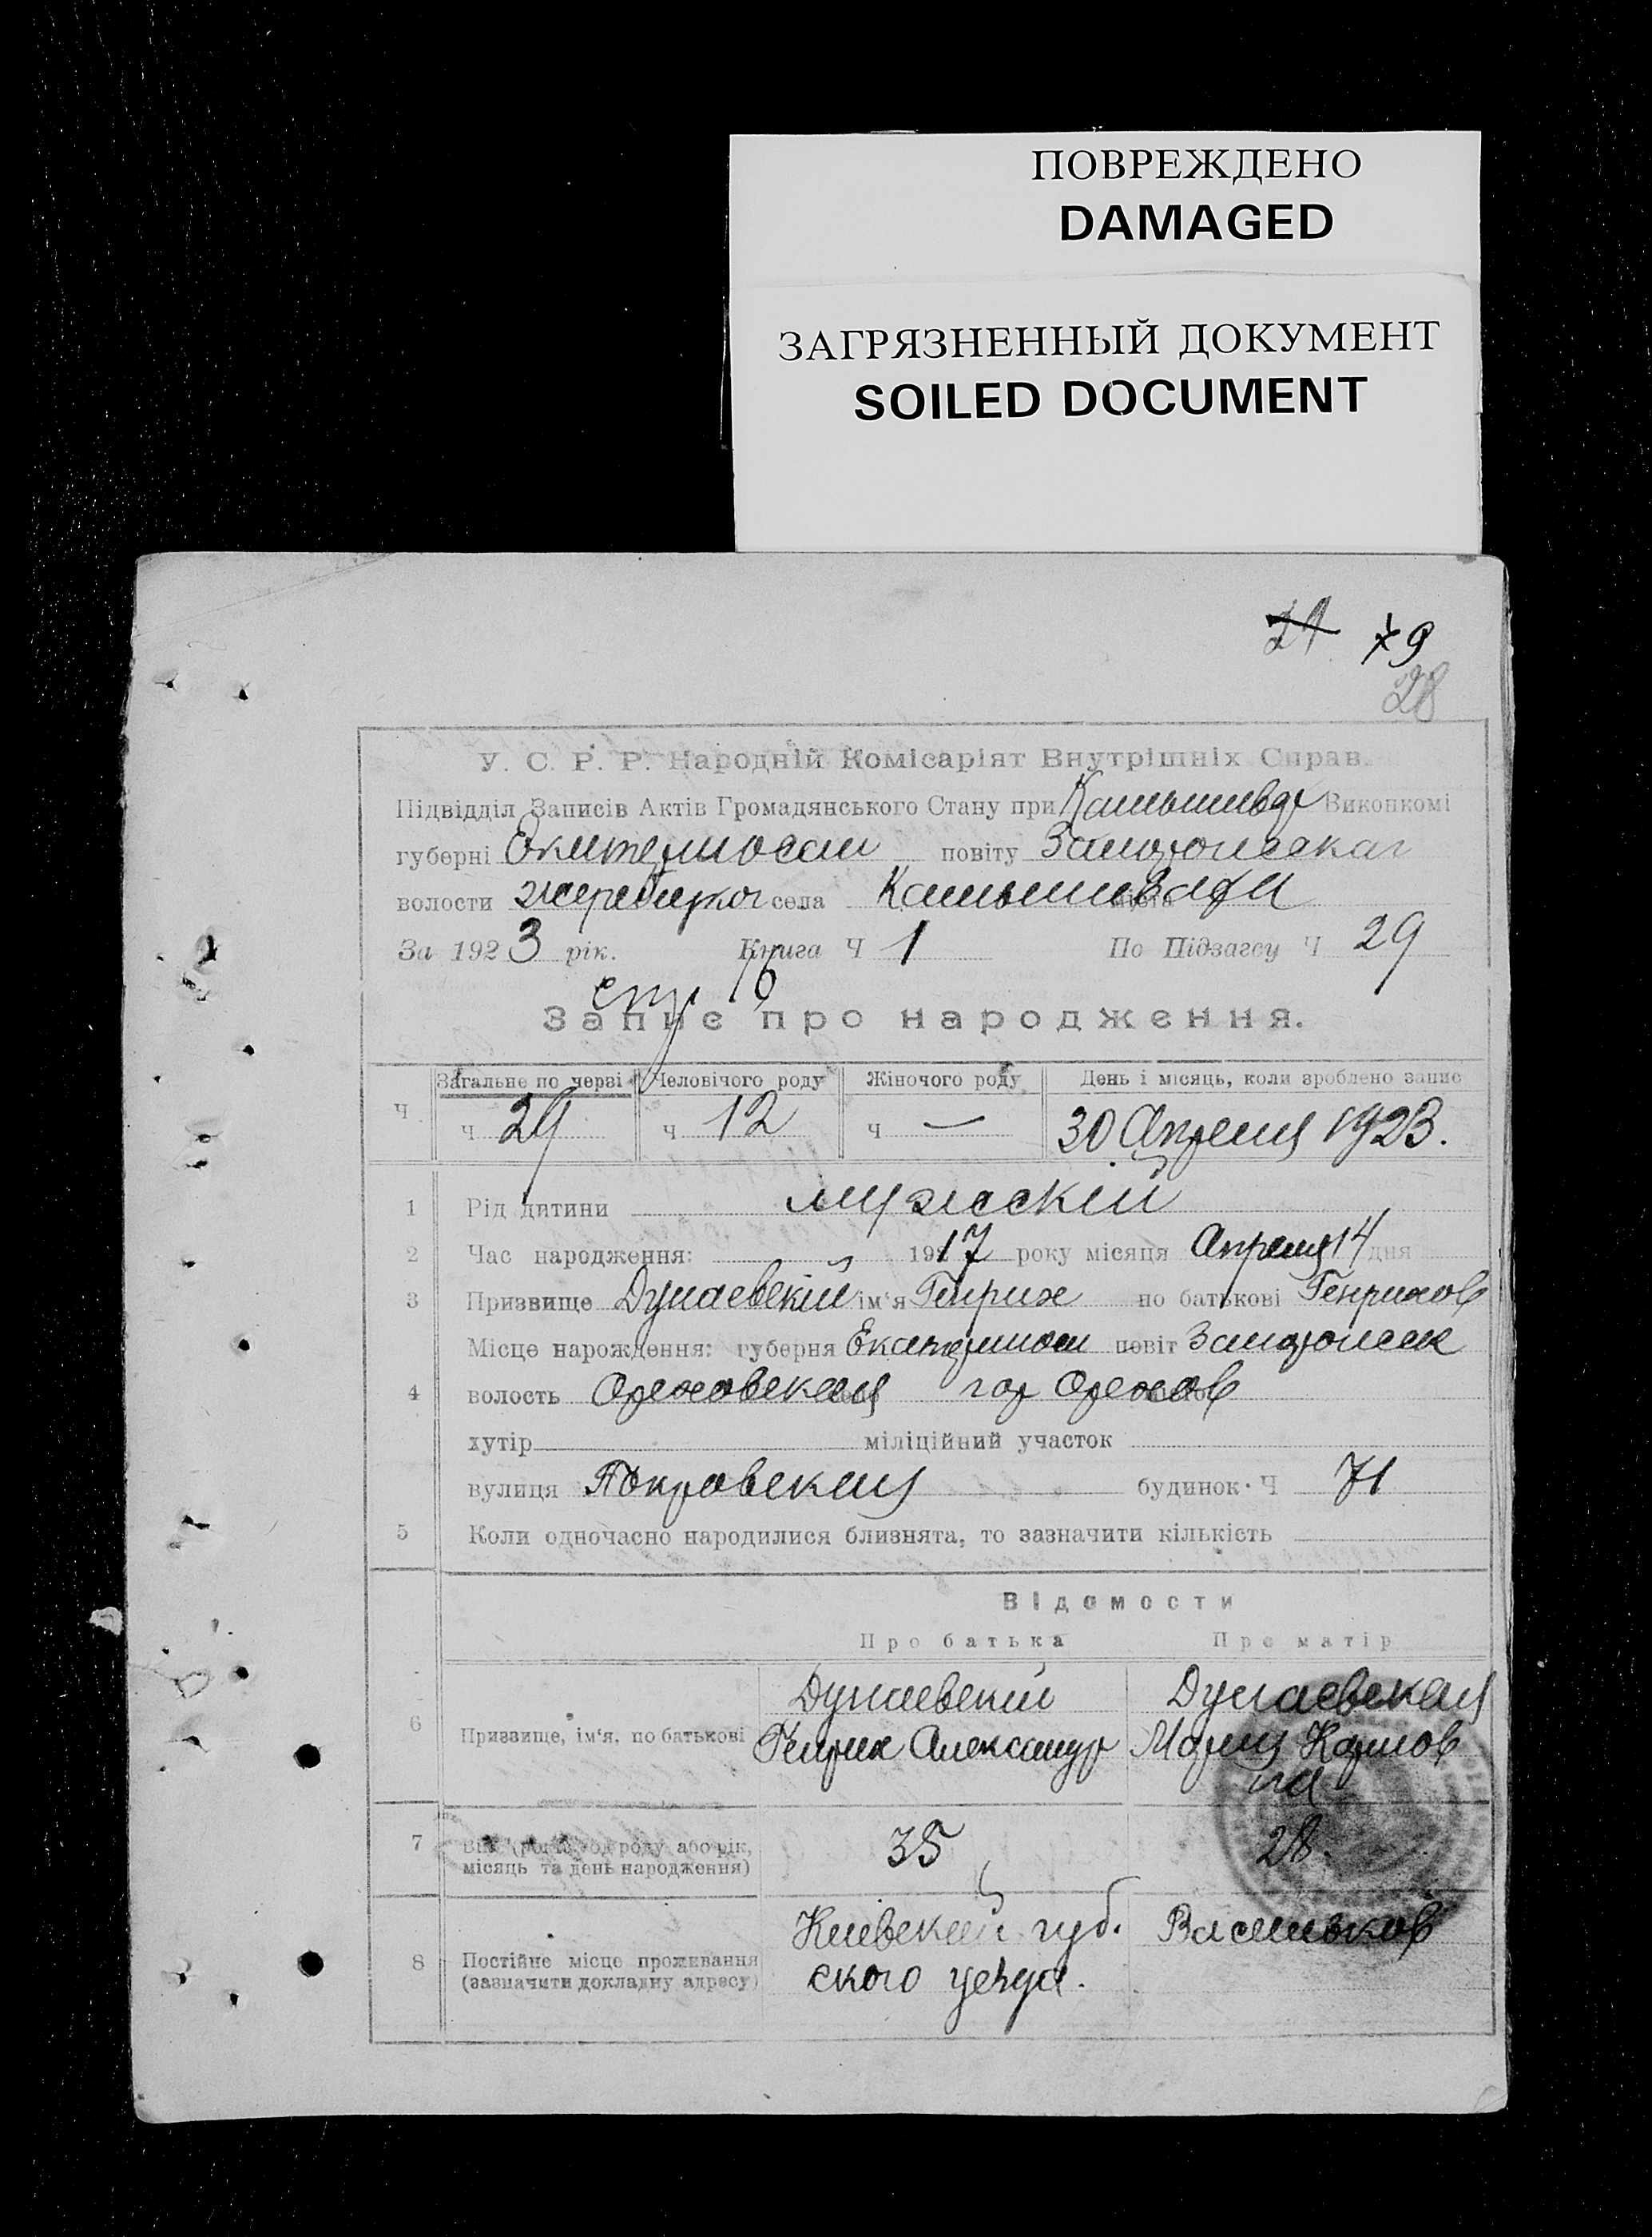 ПОВРЕЖДЕНО
DAMAGED
ЗАГРЯЗНЕННЫЙ ДОКУМЕНТ
SOILED DOCUMENT
29
28
У. С. Р. Р. Народній Комісаріят Внутрішніх Справ.
Підвідділ Записів Актів Громадянського Стану при Виконкомі
губерні повіту
волости села Камышиватки
За 1923 рік. Книга Ч 1 По Підзагсу Ч 29
стр
Запис про народження.
Загальне по черзі Человічого роду Жіночого роду День і місяць, коли зроблено запис
Ч ч 29 ч 12 ч — 30 Апреля 1923.
1 Рід дитини мужескій
2 Час народження: 1917 року місяця Апреля 14 дня
3 Призвище Дунаевскій ім'я Генрих по батькові Генрихов
Місце нарождення: губерня Екатеринос повіт
4 волость Ореховская гор Орехов
хутір міліційний участок
вулиця Покровская будинок Ч 71
5 Коли одночасно народилися близнята, то зазначити кількість
Відомости
Про батька Про матір
Дунаевскій Дунаевская
6 Призвище, ім'я, по батькові Генрих Александр Мария Карлов
на
7 Вік (років од роду або рік, 35 28.
місяць та день народження)
Киевский губ. Васильков
8 Постійне місце проживання ского уезда.
(зазначити докладну адресу)